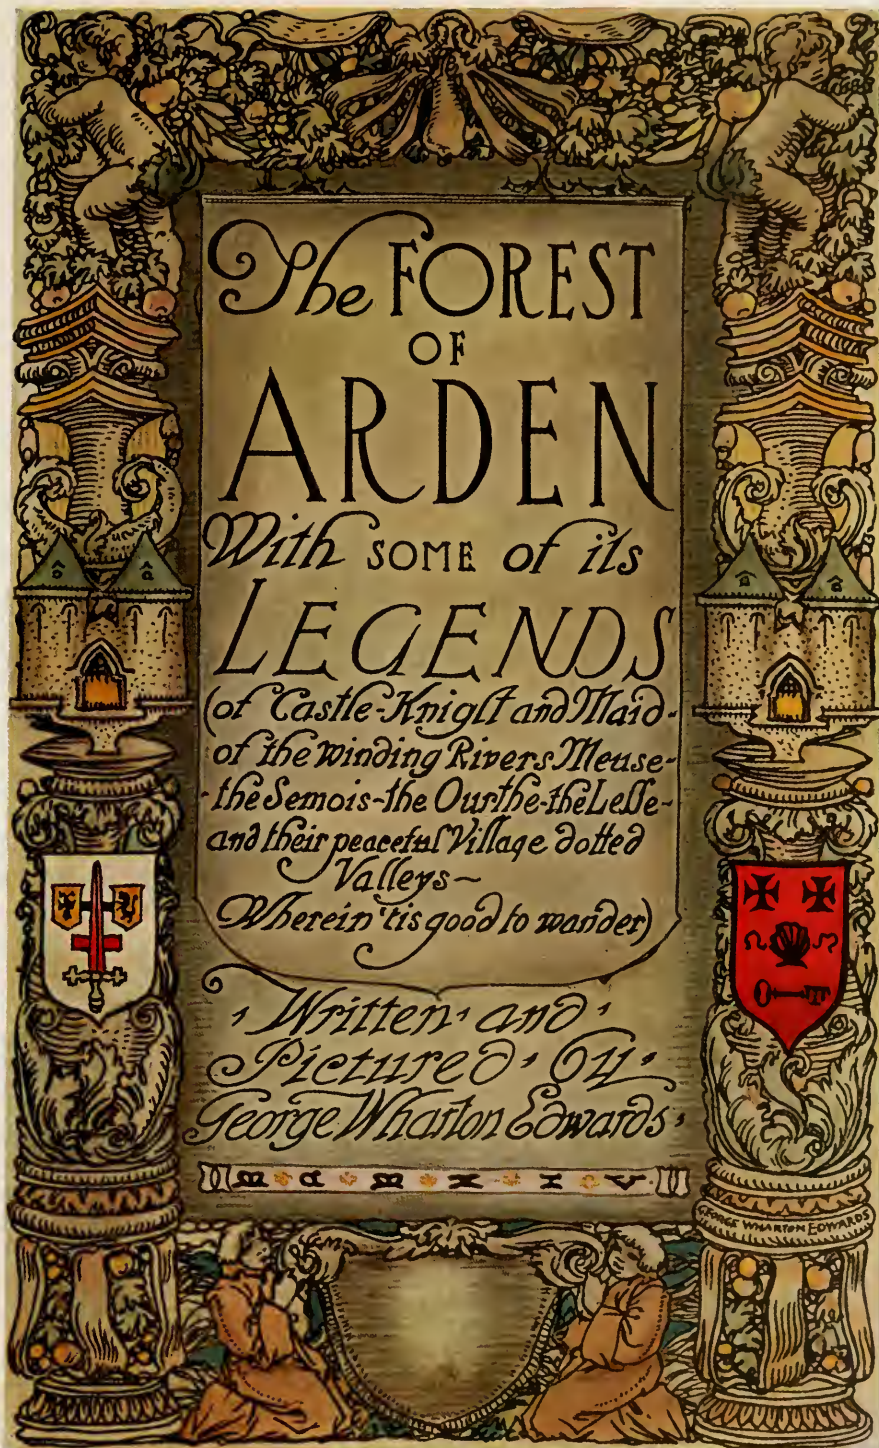 The FOREST
OF
ARDEN
With SOME of its
LEGENDS
(of Castle-Knight and Maid-
of the winding Rivers Meuse-
-the Semois-the Ourthe-the Lesse-
and their peaceful Village dotted
Valleys~
Wherein 'tis good to wander)
Written and
Pictured by
George Wharton Edwards
M C M X I V
GEORGE WHARTON EDWARDS